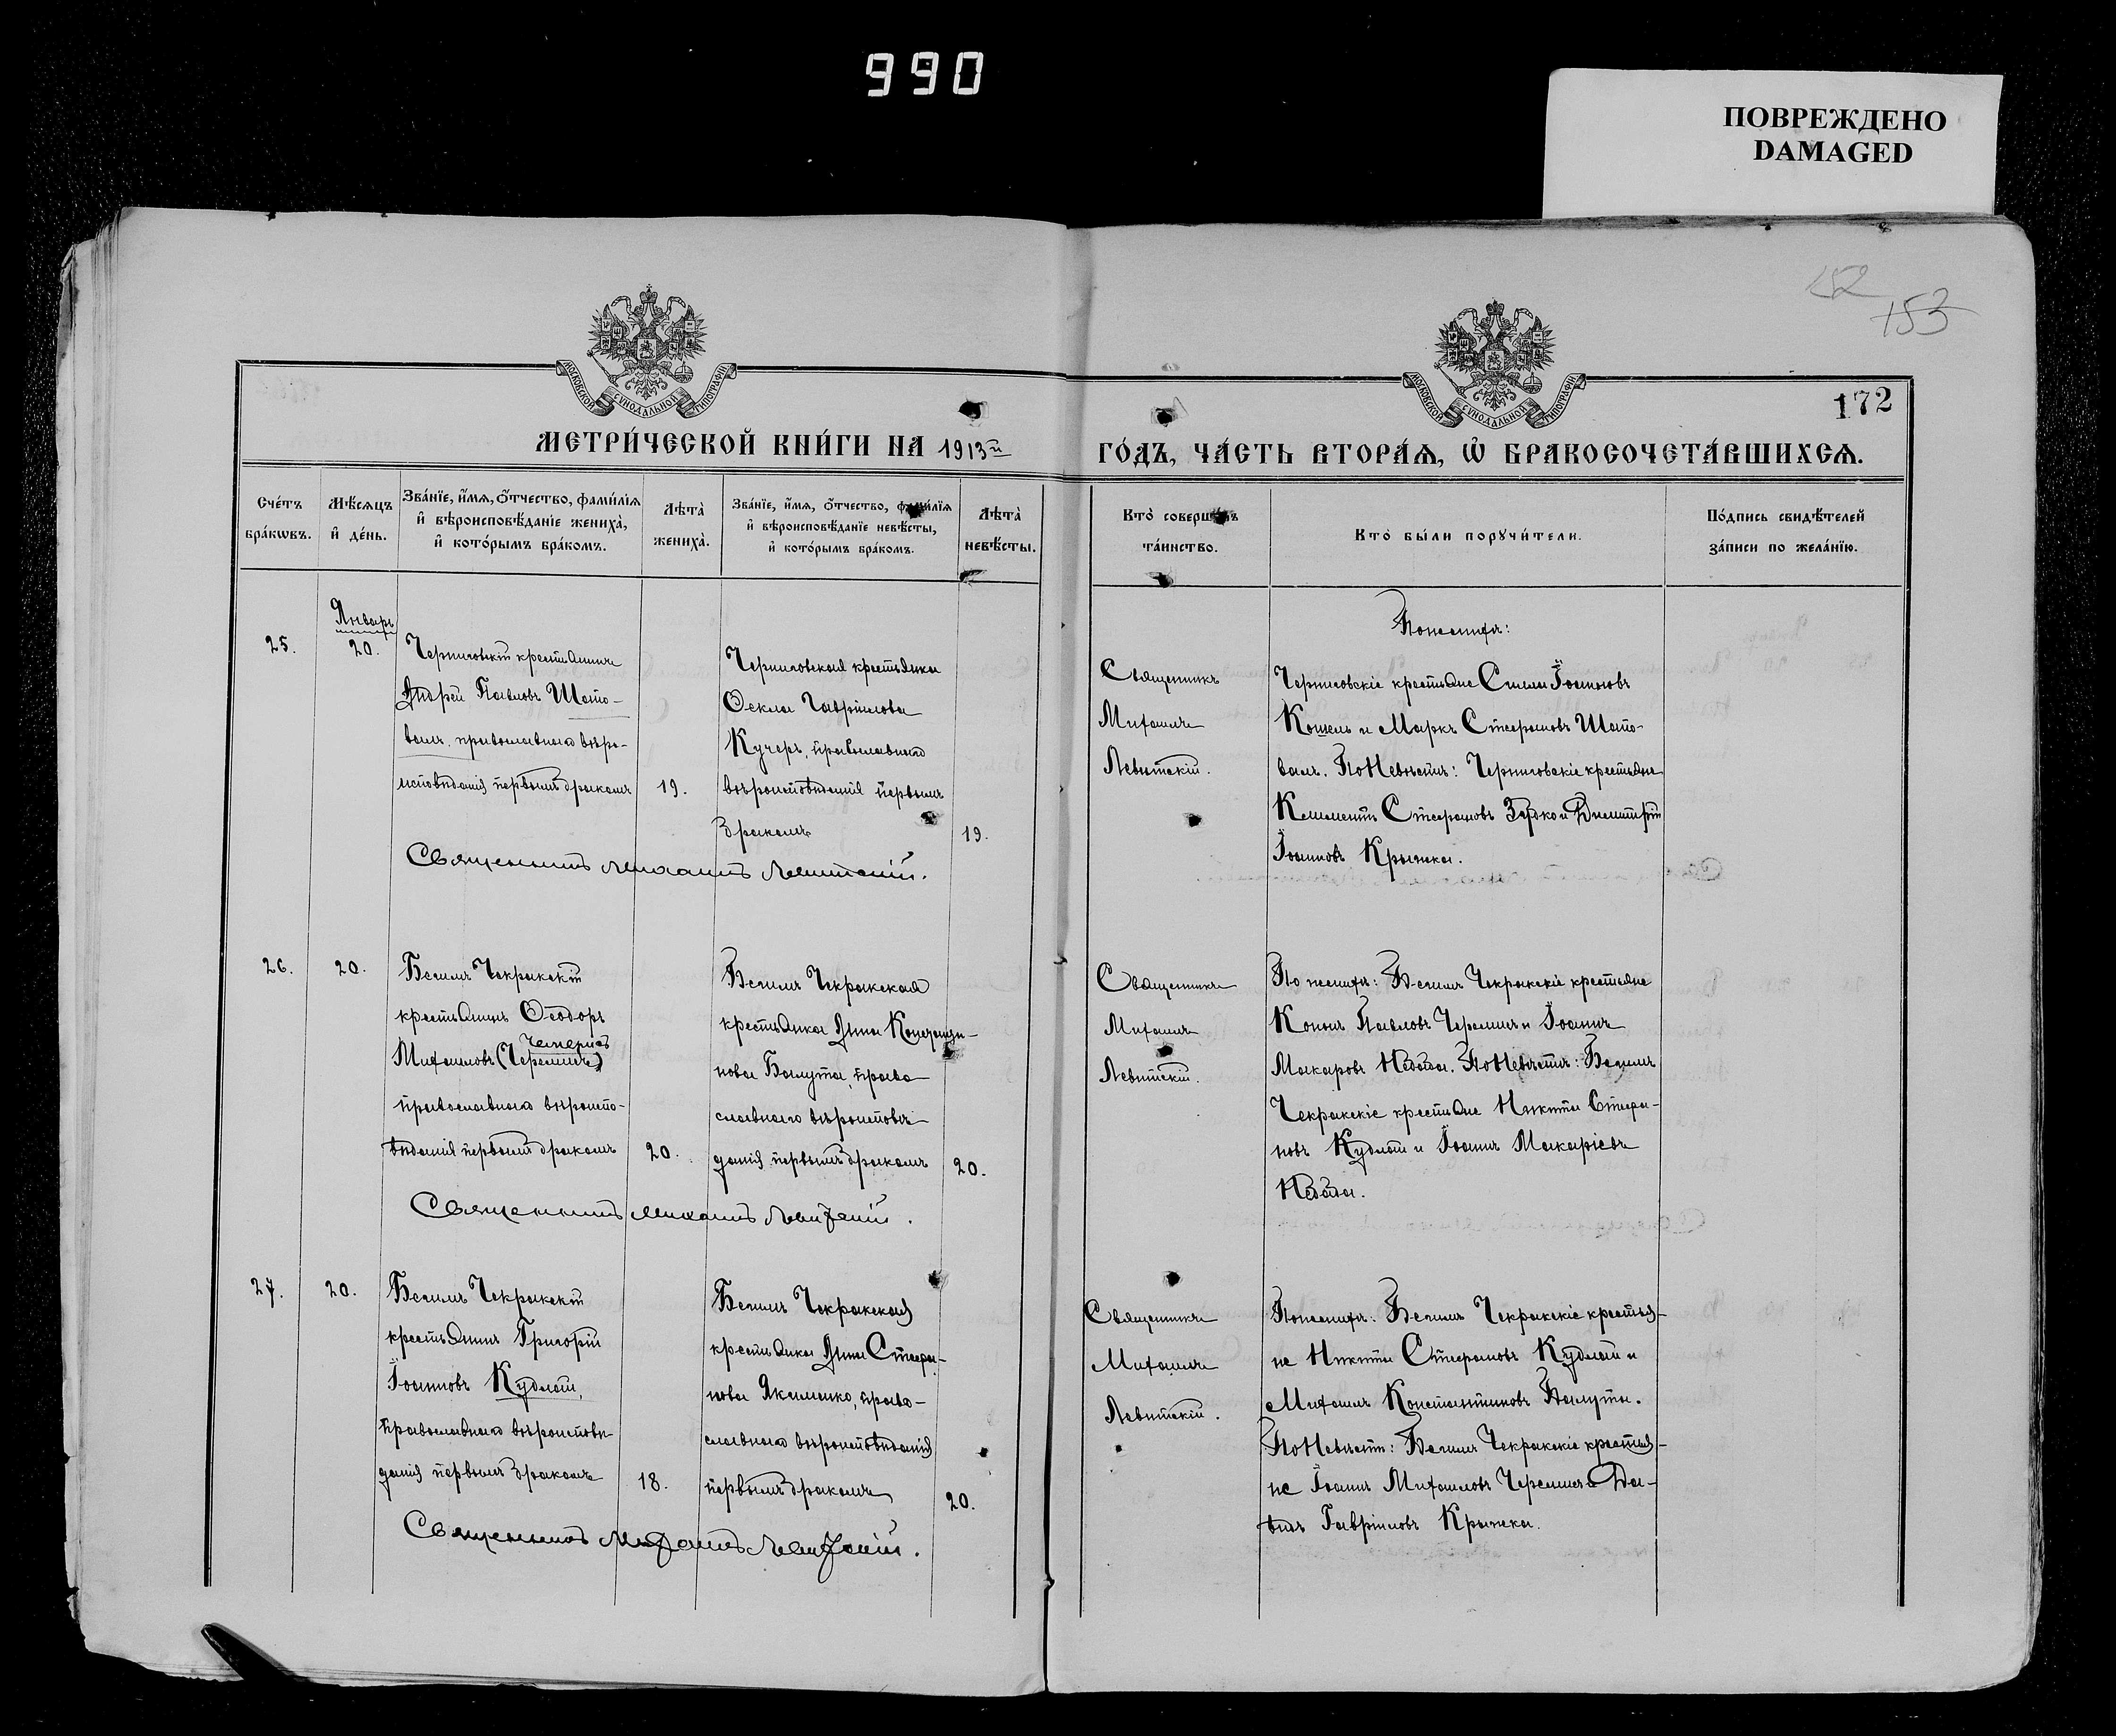 990
ПОВРЕЖДЕНО
DAMAGED
152
153
МОСКОВСКОЙ СУНОДАЛЬНОЙ ТИПОГРАФІИ
МОСКОВСКОЙ СУНОДАЛЬНОЙ ТИПОГРАФІИ
172
МЕТРИ́ЧЕСКОЙ КНИ́ГИ НА 1913й
ГО́ДЪ, ЧА́СТЬ ВТОРА́Ѧ, Ѡ҆ БРАКОСОЧЕТА́ВШИХСѦ.
Сче́тъ
бра́кѡвъ.
Мѣ́сѧцъ
и҆ де́нь.
Зва́нїе, и҆́мѧ, ѻ҆́тчество, фами́лїѧ
и҆ вѣроисповѣ́данїе жениха̀,
и҆ кото́рымъ бра́комъ.
Лѣта̀
жениха̀.
Зва́нїе, и҆́мѧ, ѻ҆́тчество, фами́лїѧ
и҆ вѣроисповѣ́данїе невѣ́сты,
и҆ кото́рымъ бра́комъ.
Лѣта̀
невѣ́сты.
Кто̀ соверша́лъ
та́инство.
Кто̀ бы́ли порꙋчи́тели.
По́дпись свидѣ́телей
за́писи по жела́нїю.
Январь
25.
20.
Черниговскій крестьянинъ
Андрей Павловъ Шапо-
валъ, православнаго веро-
исповѣданія первымъ бракомъ
19.
Черниговская крестьянка
Ѳекла Гавріилова
Кучеръ, православнаго
вѣроисповѣданія первымъ
бракомъ
19.
Священникъ
Михаилъ
Левитскій.
По женихѣ:
Черниговскіе крестьяне Симеонъ Іоанновъ
Кошель и Маркъ Стефановъ Шапо-
валъ. По Невѣстѣ: Черниговскіе крестьяне
Климентъ Стефановъ Зорко и Димитрій
Іоанновъ Крыжка.
Священникъ Михаилъ Левитскій.
26.
20.
Бегимъ Чокракскій
крестьянинъ Ѳеодоръ
Чемерисъ
Михаиловъ (Черемисъ)
православнаго вѣроиспо-
вѣданія первымъ бракомъ
20.
Бегимъ Чокракская
крестьянка Анна Констанди-
нова Балута, право
славнаго вѣроисповѣ-
данія первымъ бракомъ
20.
Священникъ
Михаилъ
Левитскій.
По женихѣ: Бегимъ Чокракскіе крестьяне
Кононъ Павловъ Черемисъ и Іоаннъ
Макаровъ Небаба. По Невѣстѣ: Бегимъ
Чокракскіе крестьяне Никита Стефа-
новъ Кудлай и Іоаннъ Макаріевъ
Небаба.
Священникъ Михаилъ Левитскій.
27.
20.
Бегимъ Чокракскій
крестьянинъ Григорій
Іоанновъ Кудлай,
православнаго вѣроисповѣ-
данія первымъ бракомъ
18.
Бегимъ Чокракская
крестьянка Анна Стефа-
нова Якименко, право-
славнаго вѣроисповѣданія
первымъ бракомъ
20.
Священникъ
Михаилъ
Левитскій.
По женихѣ: Бегимъ Чокракскіе крестья-
не Никита Стефановъ Кудлай и
Михаилъ Константиновъ Балута.
По Невѣстѣ: Бегимъ Чокракскіе крестья-
не Іоаннъ Михаиловъ Черемисъ и Да-
видъ Гавріиловъ Крыжка.
Священникъ Михаилъ Левитскій.